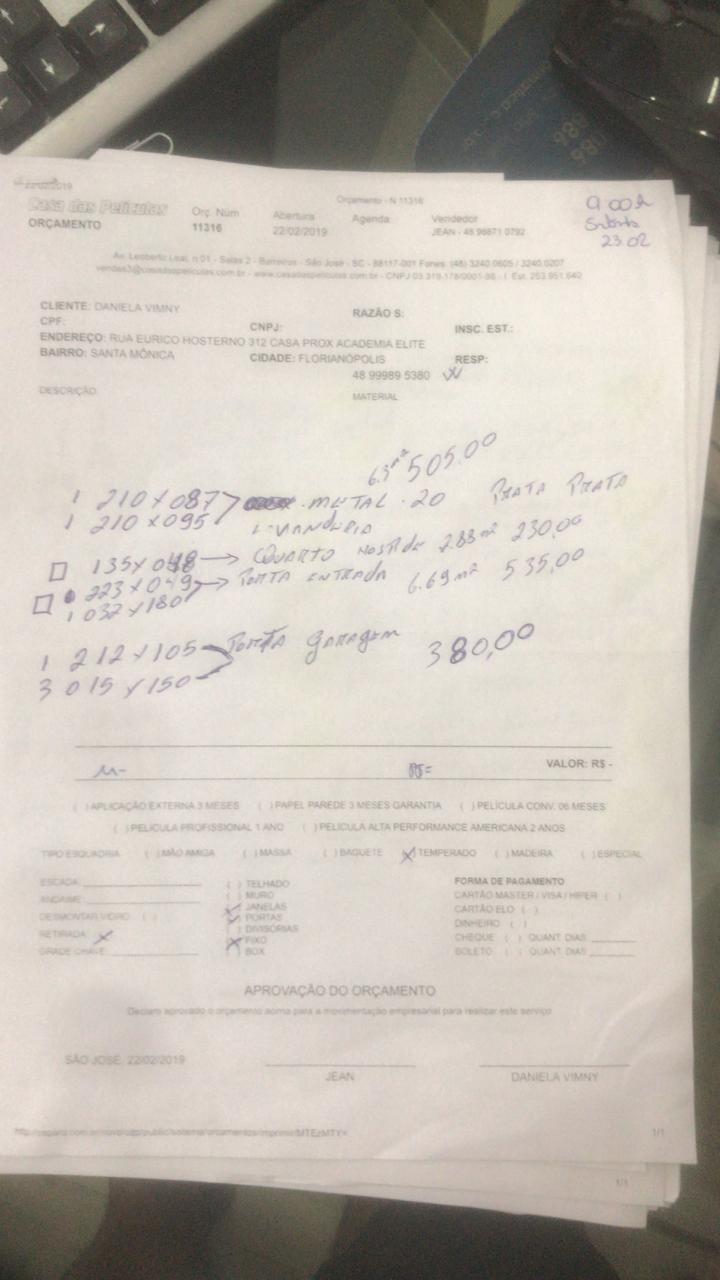 22/02/2019
Orçamento - N 11316
Casa das Películas
ORÇAMENTO
Orç. Num
11316
Abertura
22/02/2019
Agenda:
Vendedor
JEAN - 48 96871 0792
9:00h
Sabado
23.02
Av. Leoberto Leal, n 01 - Salas 2 - Barreiros - São José - SC - 88117-001 Fones: (48) 3240.0605 / 3240.0207
vendas3@casadaspeliculas.com.br - www.casadaspeliculas.com.br - CNPJ 03.319.178/0001-86 - I. Est. 253.951.640
CLIENTE: DANIELA VIMNY
RAZÃO S:
CPF:
CNPJ:
INSC. EST.:
ENDEREÇO: RUA EURICO HOSTERNO 312 CASA PROX ACADEMIA ELITE
BAIRRO: SANTA MÔNICA
CIDADE: FLORIANÓPOLIS
RESP:
48 99989 5380
DESCRIÇÃO
MATERIAL
6.3m² 505,00
1 210 x 087 METAL . 20 PRATA PRATA
1 210 x 095
135 x 048 → QUARTO 2.88m² 230,00
223 x 049 → PORTA ENTRADA 6.69m² 535,00
1 032 x 180
1 212 x 105 PORTA GARAGEM 380,00
3 015 x 150
M-
R$=
VALOR: R$ -
( ) APLICAÇÃO EXTERNA 3 MESES ( ) PAPEL PAREDE 3 MESES GARANTIA ( ) PELÍCULA CONV. 06 MESES
( ) PELÍCULA PROFISSIONAL 1 ANO ( ) PELÍCULA ALTA PERFORMANCE AMERICANA 2 ANOS
TIPO ESQUADRIA ( ) MÃO AMIGA ( ) MASSA ( ) BAQUETE (X) TEMPERADO ( ) MADEIRA ( ) ESPECIAL
ESCADA:
ANDAIME:
DESMONTAR VIDRO ( )
RETIRADA: X
GRADE CHAVE:
( ) TELHADO
( ) MURO
JANELAS
PORTAS
( ) DIVISÓRIAS
(X) FIXO
( ) BOX
FORMA DE PAGAMENTO
CARTÃO MASTER / VISA / HIPER ( )
CARTÃO ELO ( )
DINHEIRO ( )
CHEQUE ( ) QUANT. DIAS
BOLETO ( ) QUANT. DIAS
APROVAÇÃO DO ORÇAMENTO
Declaro aprovado o orçamento acima para a movimentação empresarial para realizar este serviço
SÃO JOSE, 22/02/2019
JEAN
DANIELA VIMNY
1/1
1/1